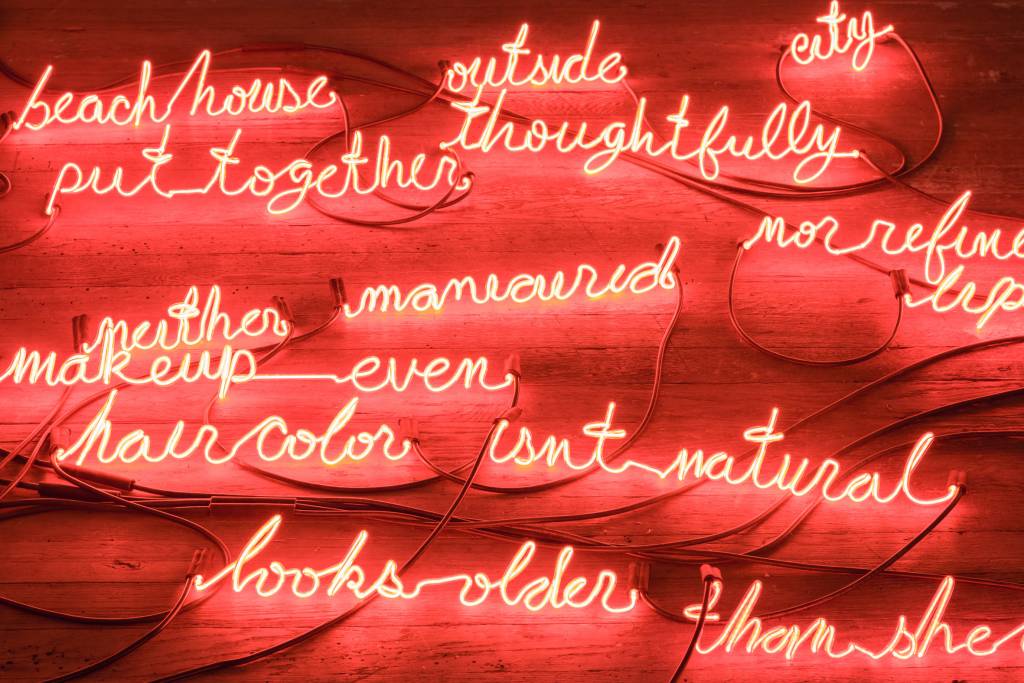 beach house outside city
put together thoughtfully
nor refine
neither manicured lip
makeup even
hair color isnt natural
looks older than she